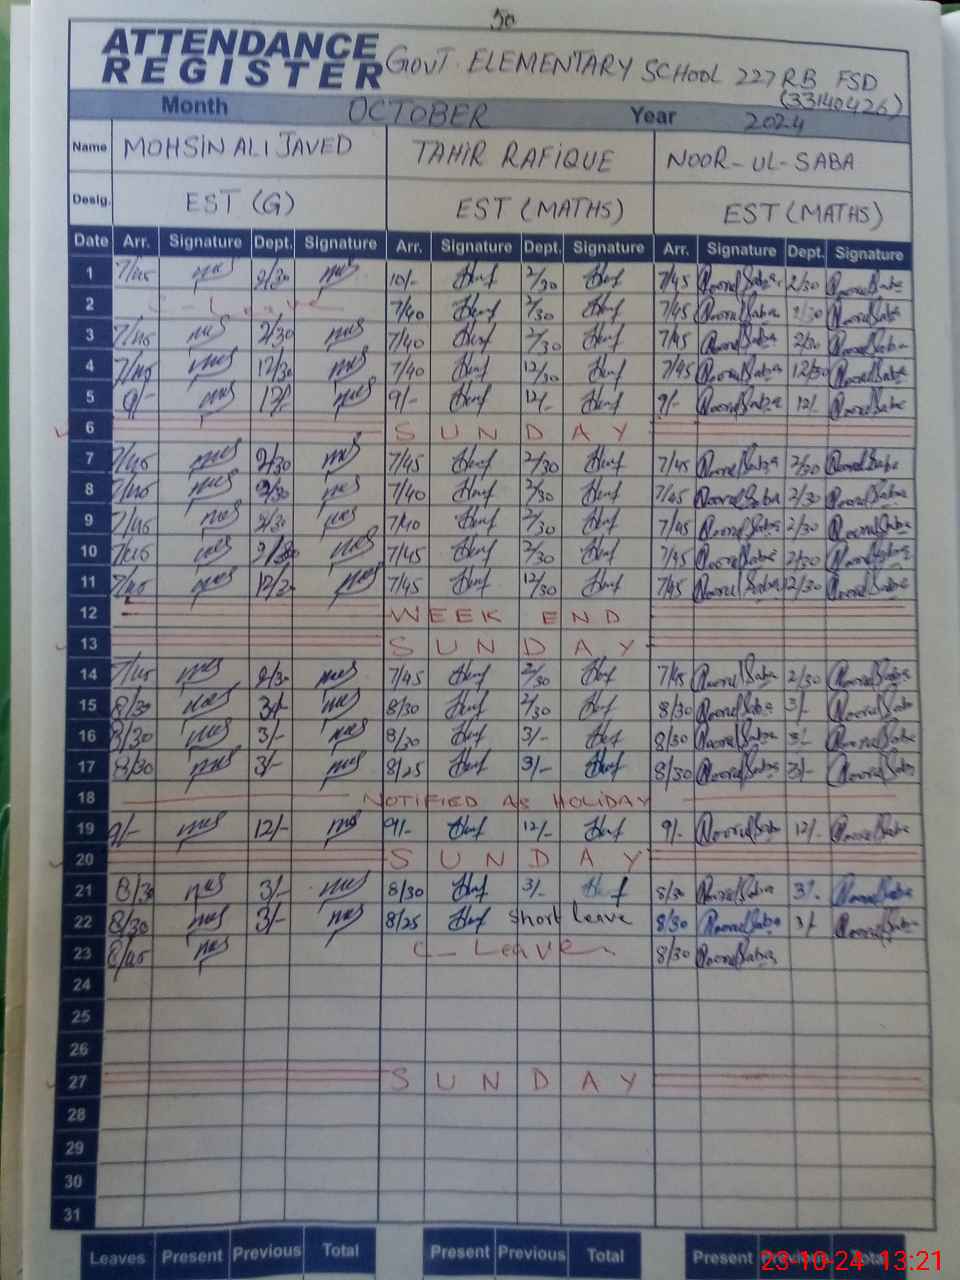 50
ATTENDANCE REGISTER GOVT. ELEMENTARY SCHOOL 227 RB FSD
(33140426)
Month OCTOBER Year 2024
Name MOHSIN ALI JAVED TAHIR RAFIQUE NOOR-UL-SABA
Desig. EST (G) EST (MATHS) EST (MATHS)
Date Arr. Signature Dept. Signature Arr. Signature Dept. Signature Arr. Signature Dept. Signature
1 7/45 2/30 10/- 2/30 7/45 Noorul Saba 2/30 Noorul Saba
2 C-Leave 7/40 2/30 7/45 Noorul Saba 2/30 Noorul Saba
3 7/45 2/30 7/40 2/30 7/45 Noorul Saba 2/30 Noorul Saba
4 7/45 12/30 7/40 12/30 7/45 Noorul Saba 12/30 Noorul Saba
5 9/- 12/- 9/- 12/- 9/- Noorul Saba 12/- Noorul Saba
6 SUNDAY
7 7/45 2/30 7/45 2/30 7/45 Noorul Saba 2/30 Noorul Saba
8 7/45 2/30 7/40 2/30 7/45 Noorul Saba 2/30 Noorul Saba
9 7/45 2/30 7/40 2/30 7/45 Noorul Saba 2/30 Noorul Saba
10 7/45 2/30 7/45 2/30 7/45 Noorul Saba 2/30 Noorul Saba
11 7/45 12/30 7/45 12/30 7/45 Noorul Saba 12/30 Noorul Saba
12 WEEK END
13 SUNDAY
14 7/45 2/30 7/45 2/30 7/45 Noorul Saba 2/30 Noorul Saba
15 8/30 3/- 8/30 2/30 8/30 Noorul Saba 3/- Noorul Saba
16 8/30 3/- 8/30 3/- 8/30 Noorul Saba 3/- Noorul Saba
17 8/30 3/- 8/25 3/- 8/30 Noorul Saba 3/- Noorul Saba
18 NOTIFIED AS HOLIDAY
19 9/- 12/- 9/- 12/- 9/- Noorul Saba 12/- Noorul Saba
20 SUNDAY
21 8/30 3/- 8/30 3/- 8/30 Noorul Saba 3/- Noorul Saba
22 8/30 3/- 8/25 Short leave 8/30 Noorul Saba 3/- Noorul Saba
23 8/45 C-Leave 8/30 Noorul Saba
24
25
26
27 SUNDAY
28
29
30
31
Leaves Present Previous Total Present Previous Total Present Previous Total
23-10-24 13:21